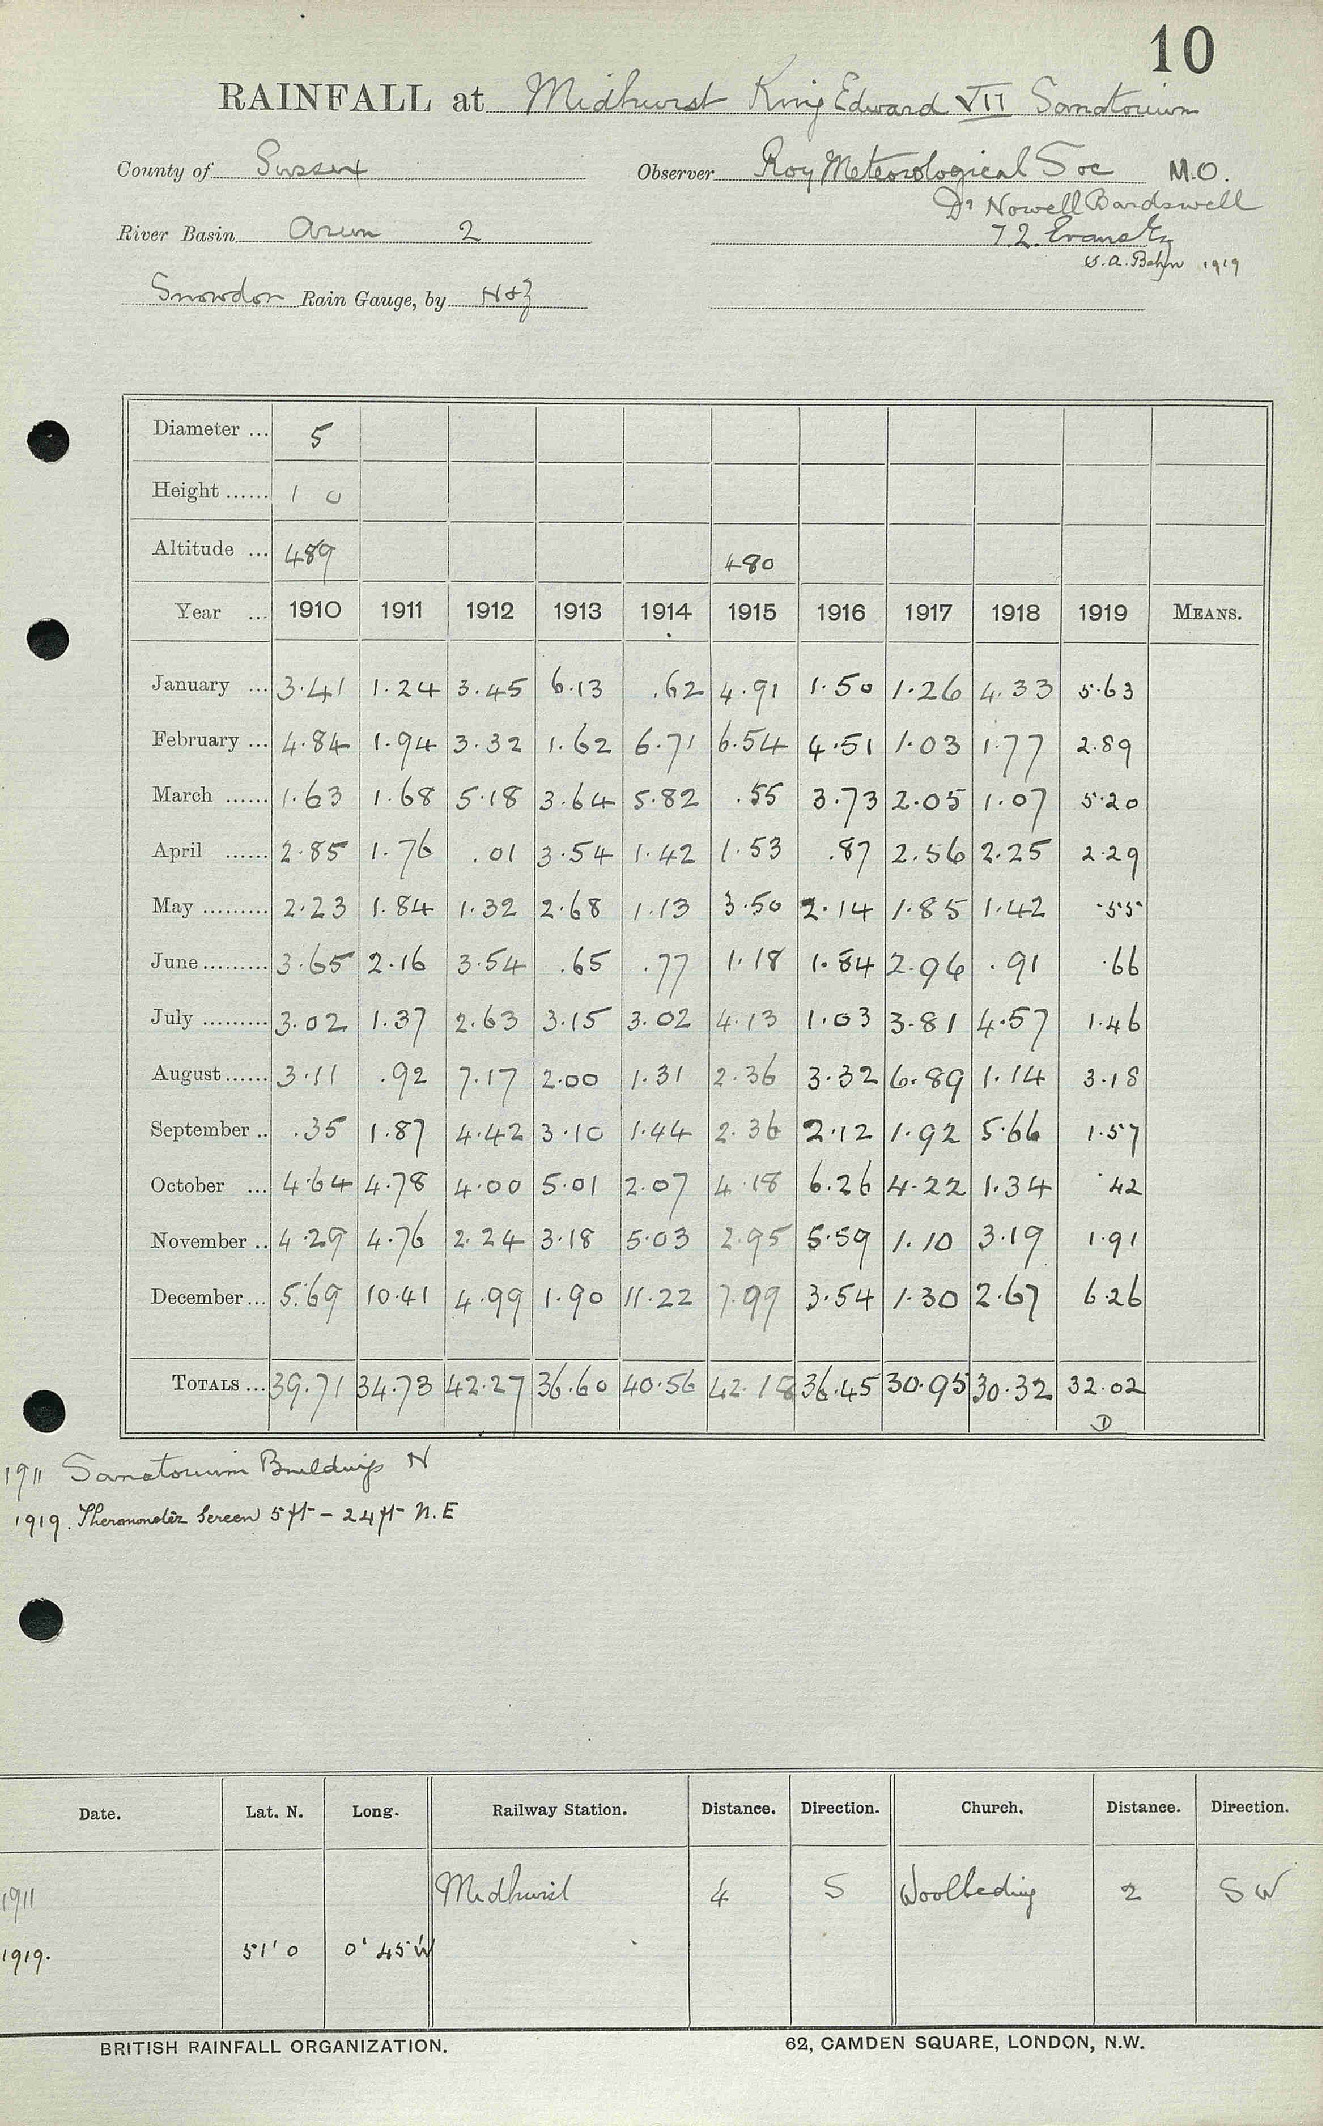 10
RAINFALL at Midhurst King Edward VII Sanatorium
County of Sussex Observer Roy Meteorological Soc M.O.
Dr Nowell Bardswell
River Basin Arun 2 Evans
1919
Snowdon Rain Gauge, by N&Z
Diameter ... 5
Height ...... 1 0
Altitude ... 489 480
Year ... 1910 1911 1912 1913 1914 1915 1916 1917 1918 1919 MEANS.
January ... 3.41 1.24 3.45 6.13 .62 4.91 1.50 1.26 4.33 5.63
February ... 4.84 1.94 3.32 1.62 6.71 6.54 4.51 1.03 1.77 2.89
March ...... 1.63 1.68 5.18 3.64 5.82 .55 3.73 2.05 1.07 5.20
April ...... 2.85 1.76 .01 3.54 1.42 1.53 .87 2.56 2.25 2.29
May ......... 2.23 1.84 1.32 2.68 1.13 3.50 2.14 1.85 1.42 .55
June ......... 3.65 2.16 3.54 .65 .77 1.18 1.84 2.96 .91 .66
July ......... 3.02 1.37 2.63 3.15 3.02 4.13 1.03 3.81 4.57 1.46
August ...... 3.11 .92 7.17 2.00 1.31 2.36 3.32 6.89 1.14 3.18
September .. .35 1.87 4.42 3.10 1.44 2.36 2.12 1.92 5.66 1.57
October ... 4.64 4.78 4.00 5.01 2.07 4.18 6.26 4.22 1.34 .42
November .. 4.29 4.76 2.24 3.18 5.03 2.95 5.59 1.10 3.19 1.91
December ... 5.69 10.41 4.99 1.90 11.22 7.99 3.54 1.30 2.67 6.26
TOTALS ... 39.71 34.73 42.27 36.60 40.56 42.18 36.45 30.95 30.32 32.02
D
1911 Sanatorium Buildings N
1919. Thermometer Screen 5 ft - 24 ft N.E
Date. Lat. N. Long. Railway Station. Distance. Direction. Church. Distance. Direction.
1911 Midhurst 4 S Woolbeding 2 SW
1919. 51' 0 0' 45' W
BRITISH RAINFALL ORGANIZATION. 62, CAMDEN SQUARE, LONDON, N.W.